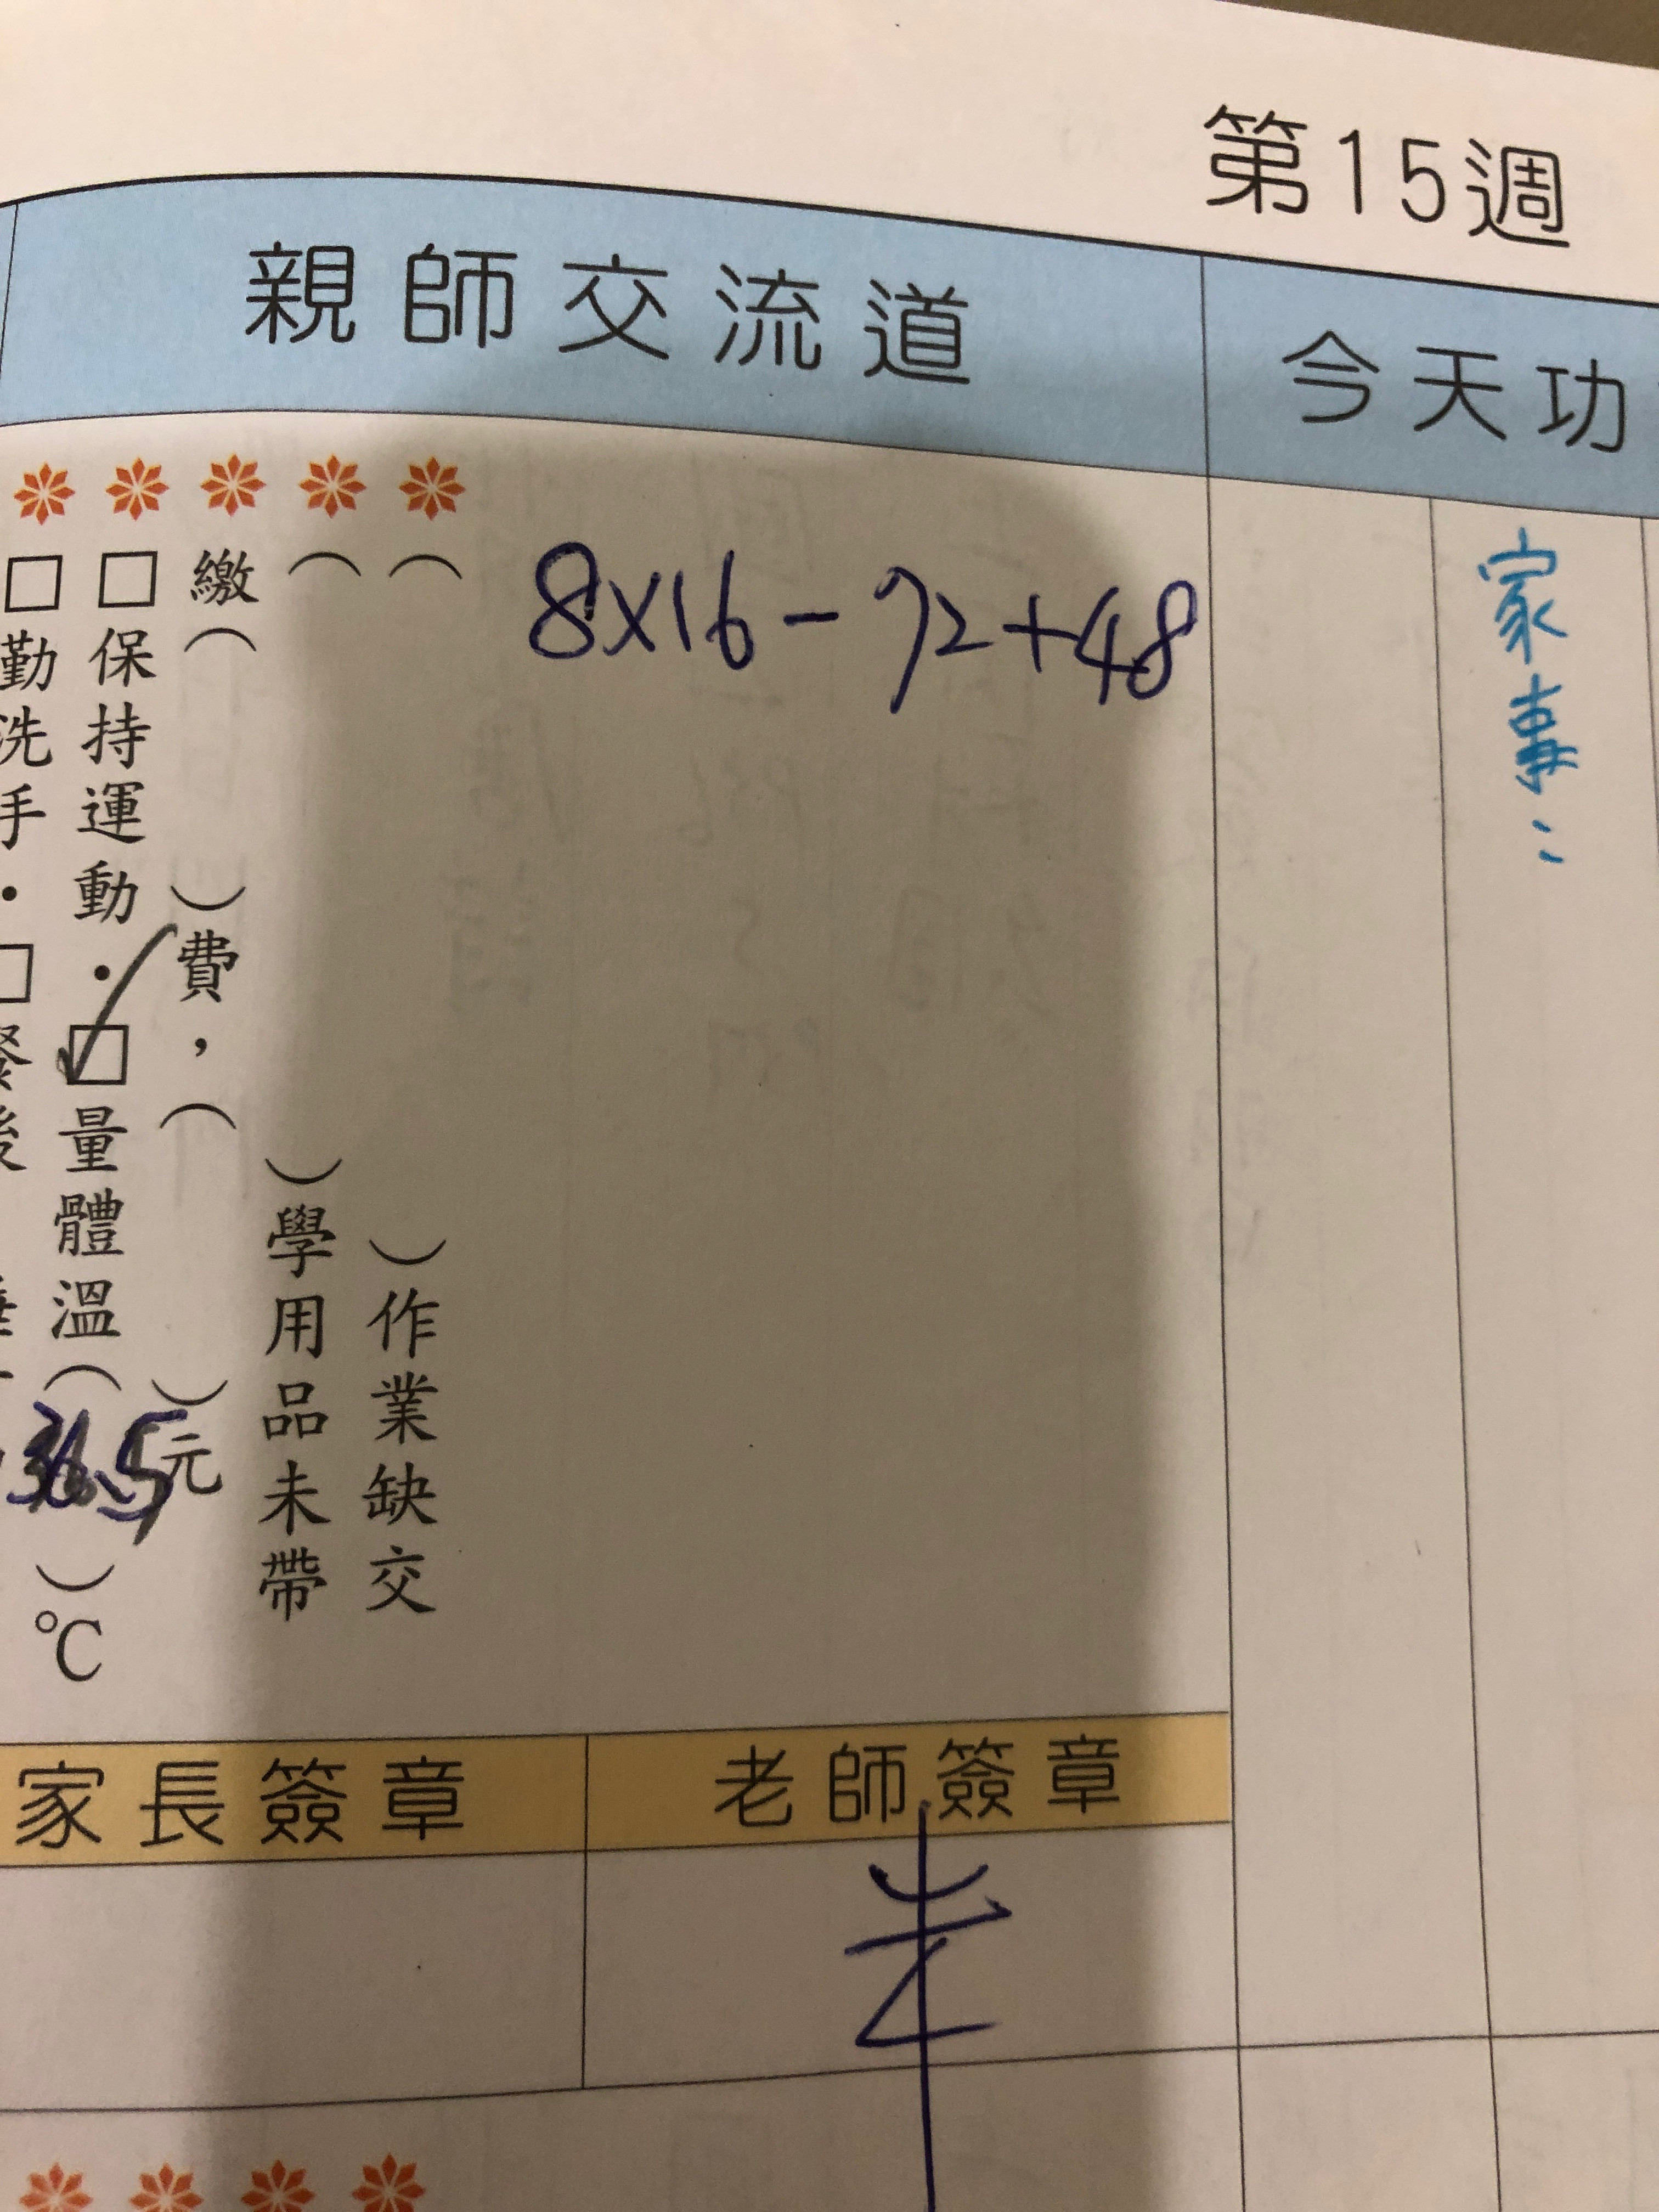 第15週
親師交流道
今天功
8×16－72＋48
家事：
（　）作業缺交
（　）學用品未帶
繳（　）費，（　）元
□保持運動・☑量體溫（36.5）℃
□勤洗手・□
家長簽章
老師簽章